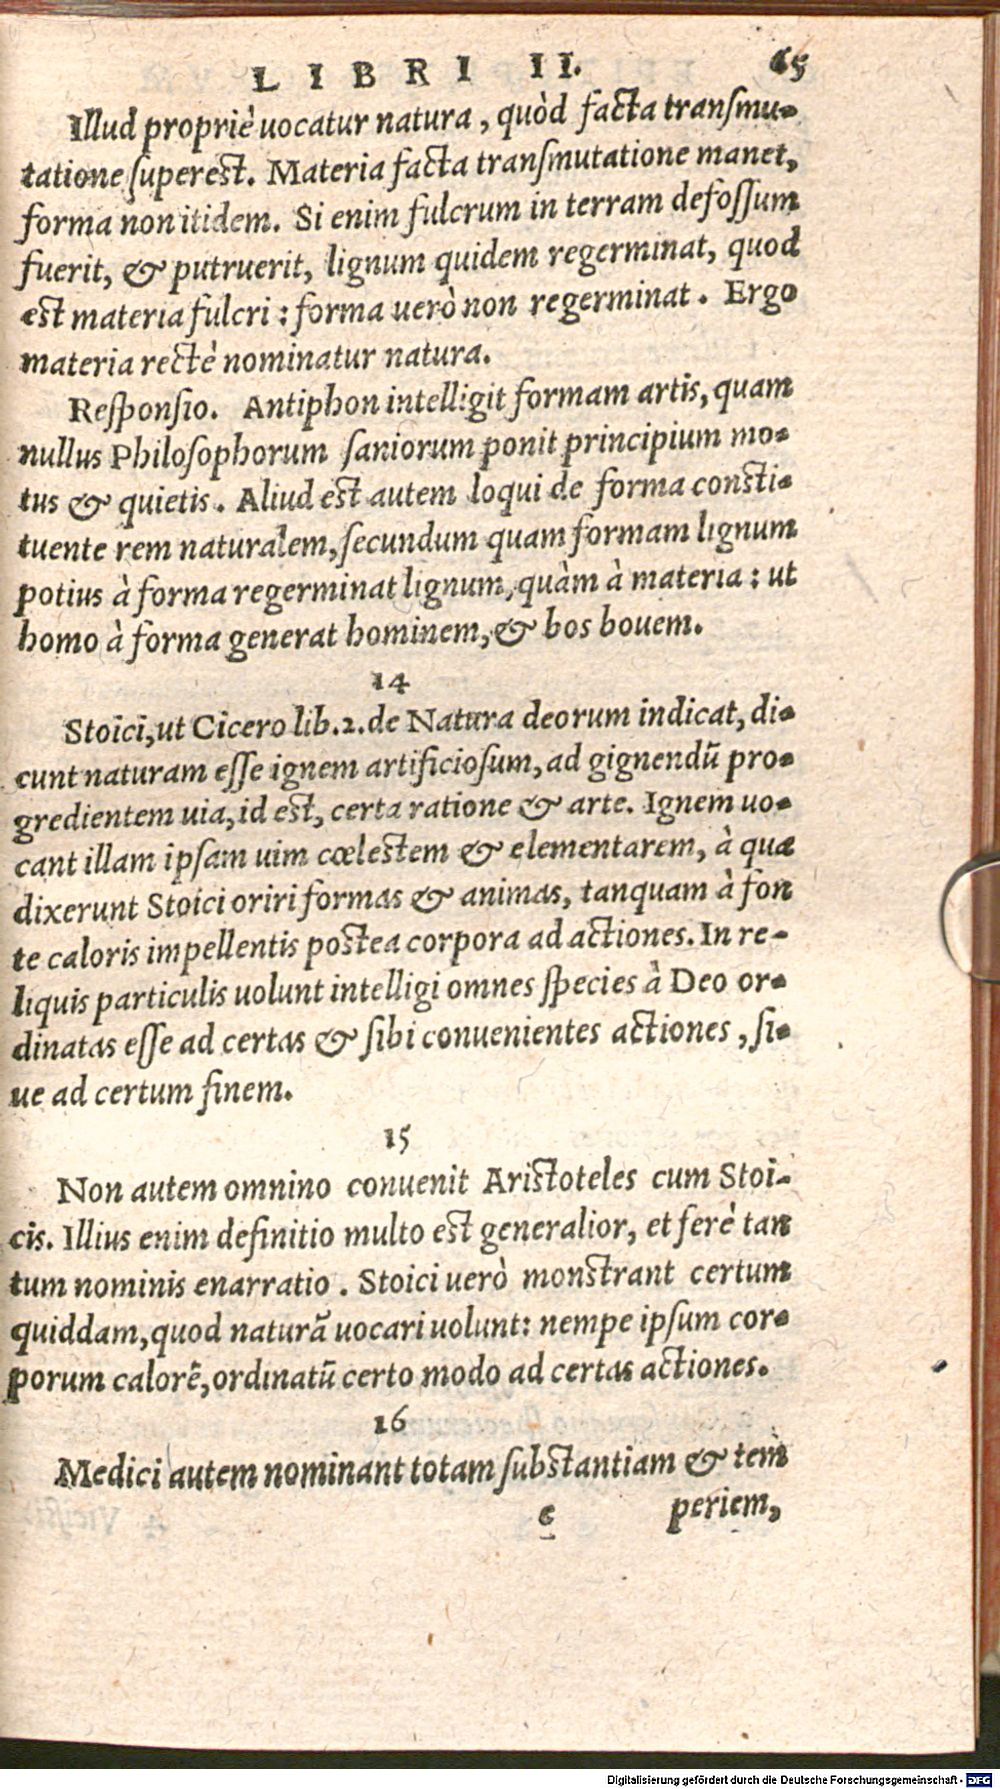 LIBRI II. 65
Illud propriè uocatur natura, quòd facta transmu-
tatione superest. Materia facta transmutatione manet,
forma non itidem. Si enim fulcrum in terram defossum
fuerit, & putruerit, lignum quidem regerminat, quod
est materia fulcri: forma uerò non regerminat. Ergo
materia rectè nominatur natura.
Responsio. Antiphon intelligit formam artis, quam
nullus Philosophorum saniorum ponit principium mo-
tus & quietis. Aliud est autem loqui de forma consti-
tuente rem naturalem, secundum quam formam lignum
potius à forma regerminat lignum, quàm à materia: ut
homo à forma generat hominem, & bos bouem.
14
Stoici, ut Cicero lib. 2. de Natura deorum indicat, di-
cunt naturam esse ignem artificiosum, ad gignendũ pro-
gredientem uia, id est, certa ratione & arte. Ignem uo-
cant illam ipsam uim cœlestem & elementarem, à qua
dixerunt Stoici oriri formas & animas, tanquam à fon
te caloris impellentis postea corpora ad actiones. In re-
liquis particulis uolunt intelligi omnes species à Deo or-
dinatas esse ad certas & sibi conuenientes actiones, si-
ue ad certum finem.
15
Non autem omnino conuenit Aristoteles cum Stoi-
cis. Illius enim definitio multo est generalior, et ferè tan
tum nominis enarratio. Stoici uerò monstrant certum
quiddam, quod naturã uocari uolunt: nempe ipsum cor-
porum calorẽ, ordinatũ certo modo ad certas actiones.
16
Medici autem nominant totam substantiam & tem
e periem,
Digitalisierung gefördert durch die Deutsche Forschungsgemeinschaft - DFG